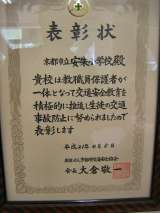 表彰状
京都市立安朱小学校殿
貴校は教職員保護者が
一体となって交通安全教育を
積極的に推進し生徒の交通
事故防止に努められましたので
表彰します
平成21年
会長 大倉敬一